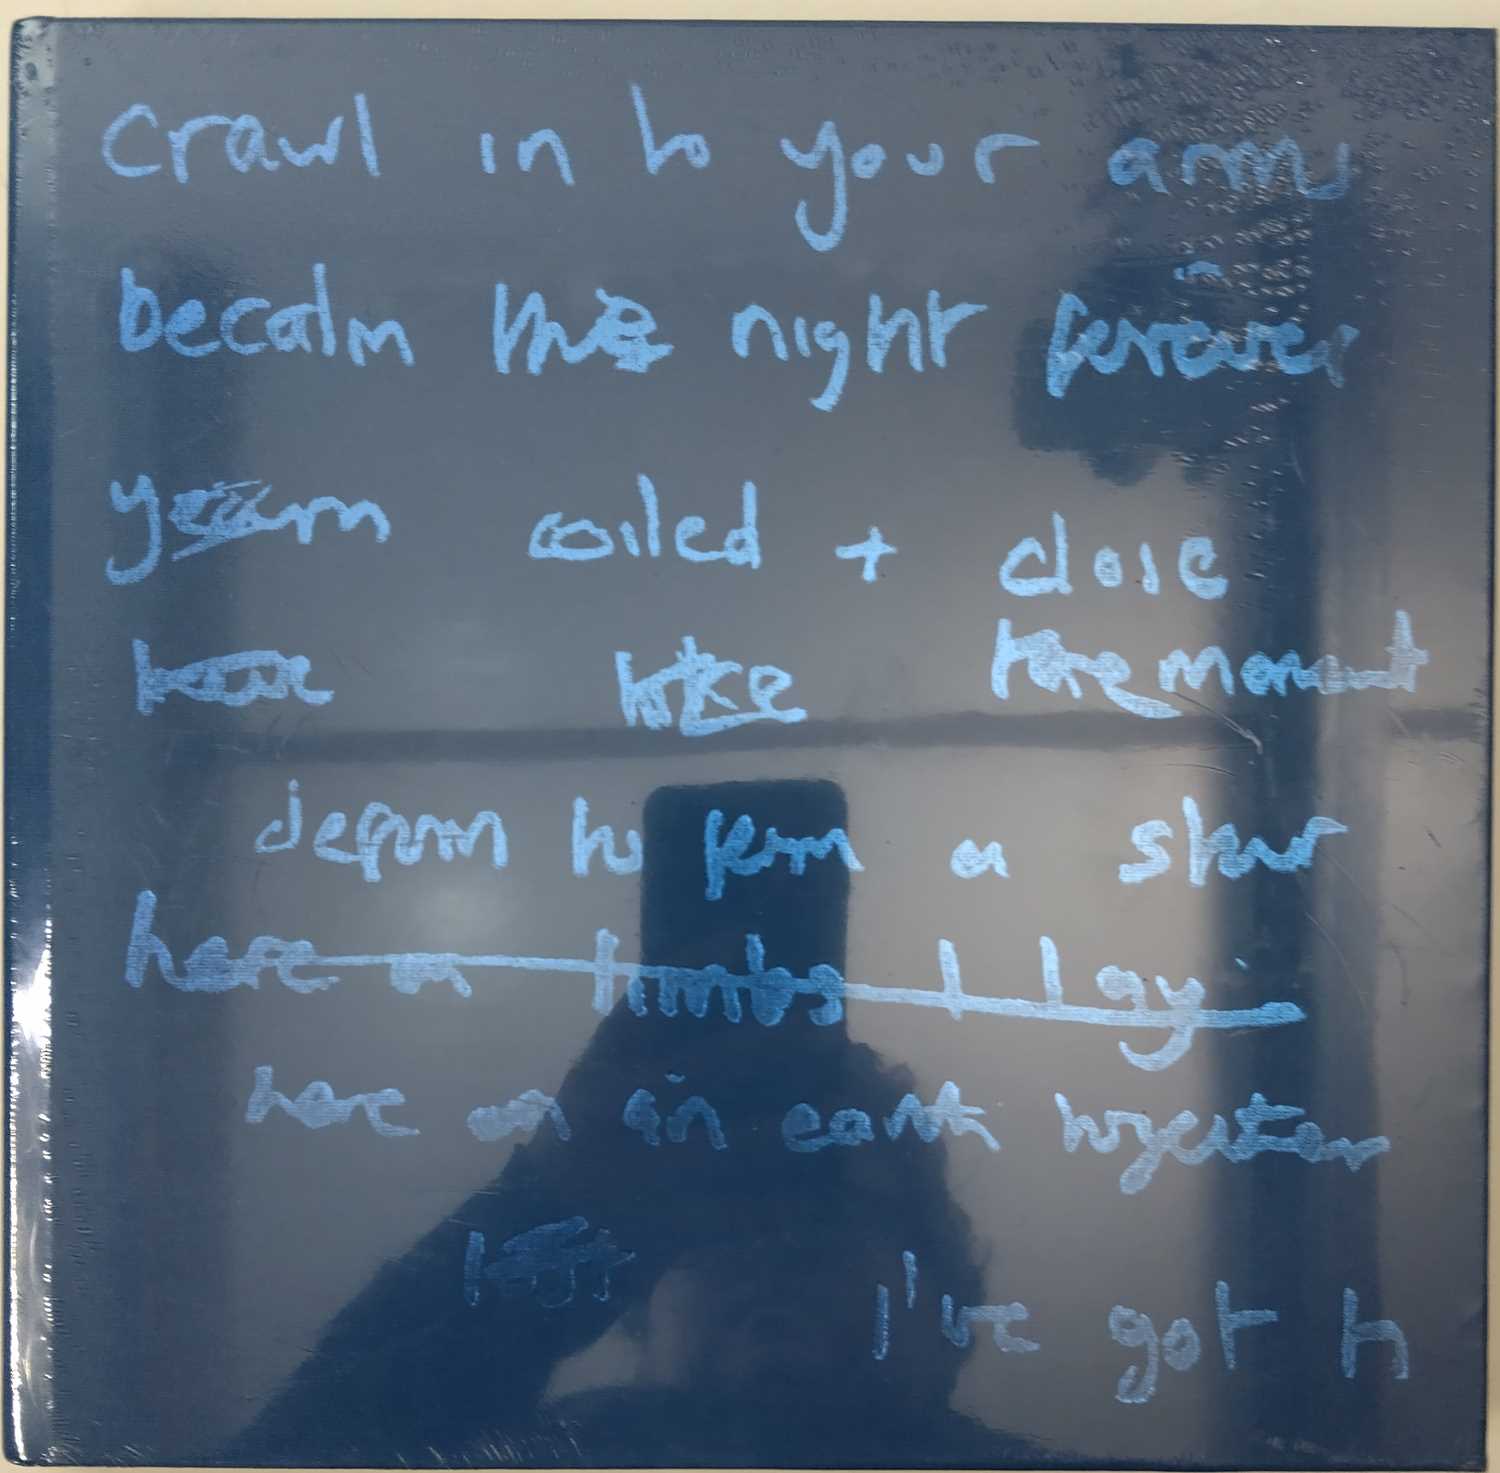 crawl in to your arms
becalm the night forever
yearn coiled + close
like the moment
deform to form a star
here on limbs I lay
here on in earth together
I've got